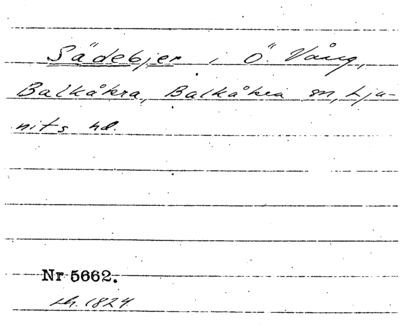 Sädebjer i Ö. Vång,
Balkåkra, Balkåkra sn, Lju-
nits hd.
Nr 5662.
sk. 1824